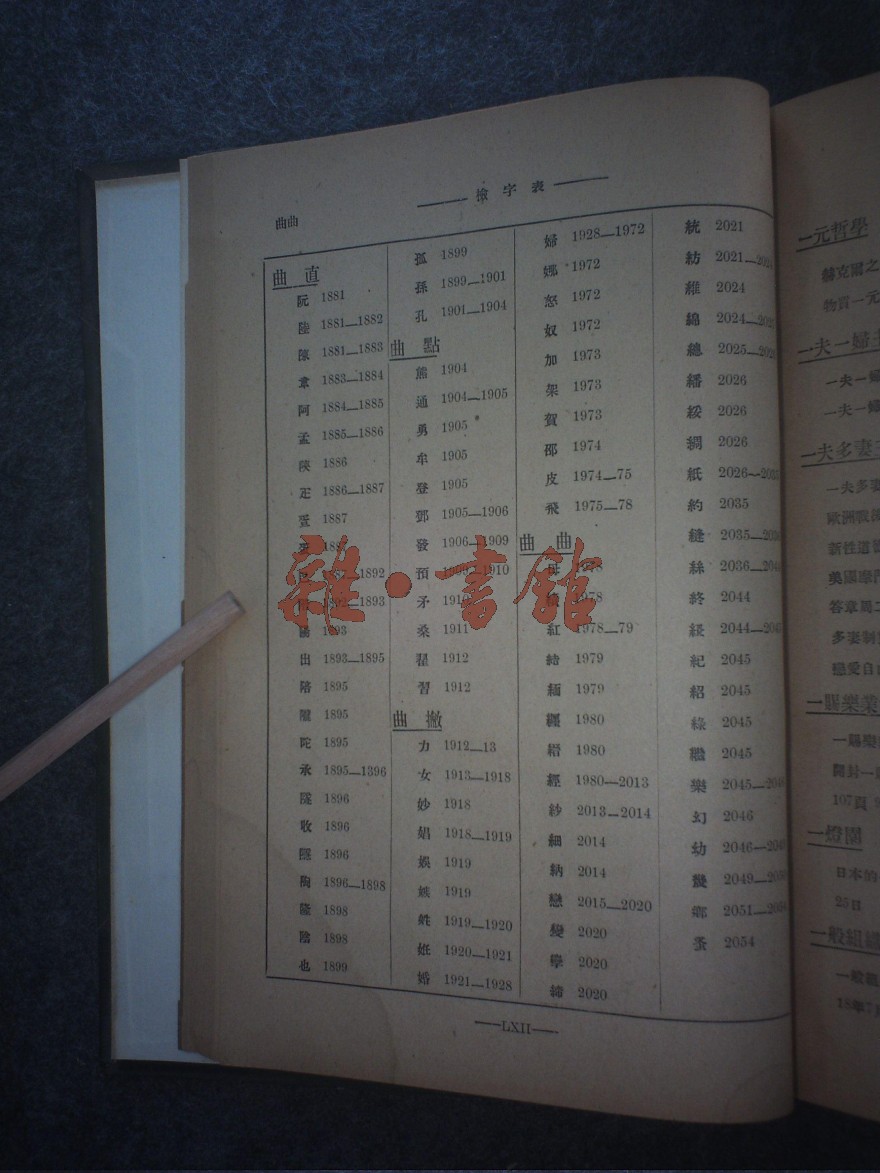 檢字表
曲曲
曲直
阮 1881
陸 1881—1882
陳 1881—1883
韋 1883—1884
阿 1884—1885
孟 1885—1886
陝 1886
疋 1886—1887
疍 1887
1892
1892—1893
陽 1893
出 1893—1895
陪 1895
隴 1895
陀 1895
承 1895—1396
隧 1896
收 1896
隱 1896
陶 1896—1898
隆 1898
陰 1898
也 1899
孤 1899
孫 1899—1901
孔 1901—1904
曲點
熊 1904
通 1904—1905
勇 1905
牟 1905
登 1905
鄧 1905—1906
發 1906—1909
預 1909—1910
矛 1910
桑 1911
翟 1912
習 1912
曲撇
力 1912—13
女 1913—1918
妙 1918
娼 1918—1919
娛 1919
嫉 1919
姓 1919—1920
妊 1920—1921
婚 1921—1928
婦 1928—1972
娜 1972
怒 1972
奴 1972
加 1973
架 1973
賀 1973
邵 1974
皮 1974—75
飛 1975—78
曲曲
1978
1978
紅 1978—79
緒 1979
緬 1979
纒 1980
縉 1980
經 1980—2013
紗 2013—2014
細 2014
納 2014
戀 2015—2020
變 2020
孿 2020
締 2020
統 2021
紡 2021—
維 2024
綿 2024—
總 2025—
繙 2026
綏 2026
綢 2026
紙 2026—
約 2035
縫 2035—
絲 2036—
終 2044
2044—
紀 2045
紹 2045
綠 2045
繼 2045
樂 2045—
幻 2046
幼 2046—
幾 2049—
鄉 2051—
蚤 2054
—LXII—
雜·書館
一元哲學
赫克爾之
物質一元
一夫一婦主
一夫一婦
一夫一婦
一夫多妻主
一夫多妻
歐洲戰後
新性道德
美國摩門
答章馬二
多妻制
戀愛自由
一賜樂業
一賜樂
開封一
107頁
一燈園
日本的
25日
一般組織
一般組
18年7月